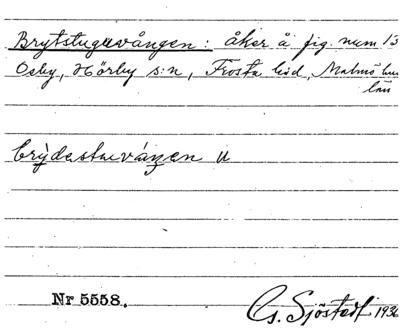 Brytstuguvången: åker å fig. num 13
Osby, Hörby s:n, Frosta hd, Malmöhus
län
brỳdestuvángen U
Nr 5558.
G. Sjöstedt 1936